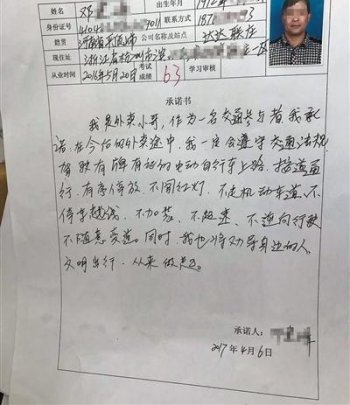 姓名 邓 出生年月
身份证号 4104 7011 联系方式 187 93
籍贯 河南省平顶山市 公司名称及站点 达达 联庄
现住址 浙江省杭州市滨
从业时间 2016年5月20日 考试成绩 63 学习审核
承诺书
我是外卖小哥,作为一名交通参与者,我承
诺:在今后的外卖途中,我一定会遵守交通法规
驾驶有牌有证的电动自行车上路,按道通
行、有序停放、不闯红灯、不走机动车道、不
停车越线、不加装、不超速、不逆向行驶
不随意变道。同时,我也将劝导身边的人。
文明出行,从来做起。
承诺人:
2017年4月6日